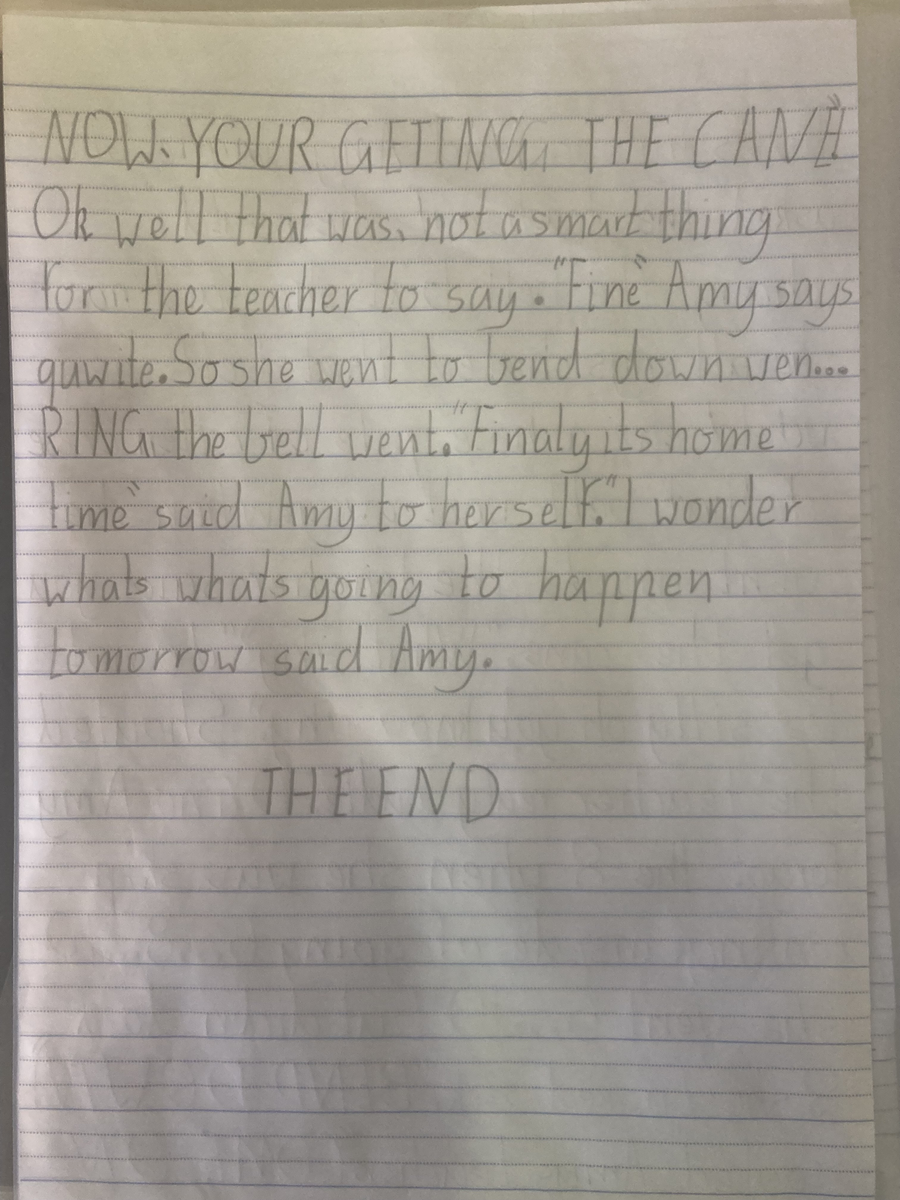 NOW. YOUR GETING THE CANE"
Ok well that was. not a smart thing
for the teacher to say. "Fine" Amy says
quwite. So she went to bend down wen...
RING the bell went. "Finaly its home
time" said Amy to herself. "I wonder
whats whats going to happen
tomorrow said Amy.
THE END